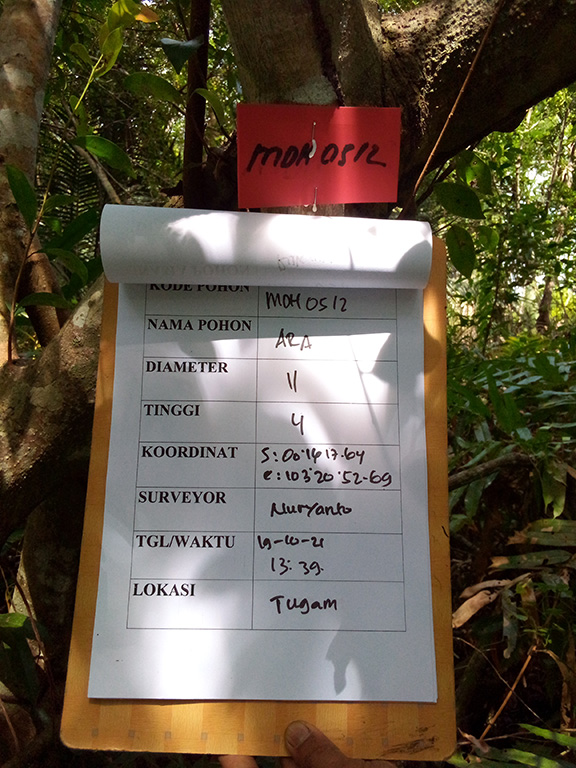 MDH 0512
KODE POHON MDH 0512
NAMA POHON ARA
DIAMETER 11
TINGGI 4
KOORDINAT S: 00°14'17.64
e: 103°20'52-69
SURVEYOR Nuryanto
TGL/WAKTU 19-10-21
13:39.
LOKASI Tugam